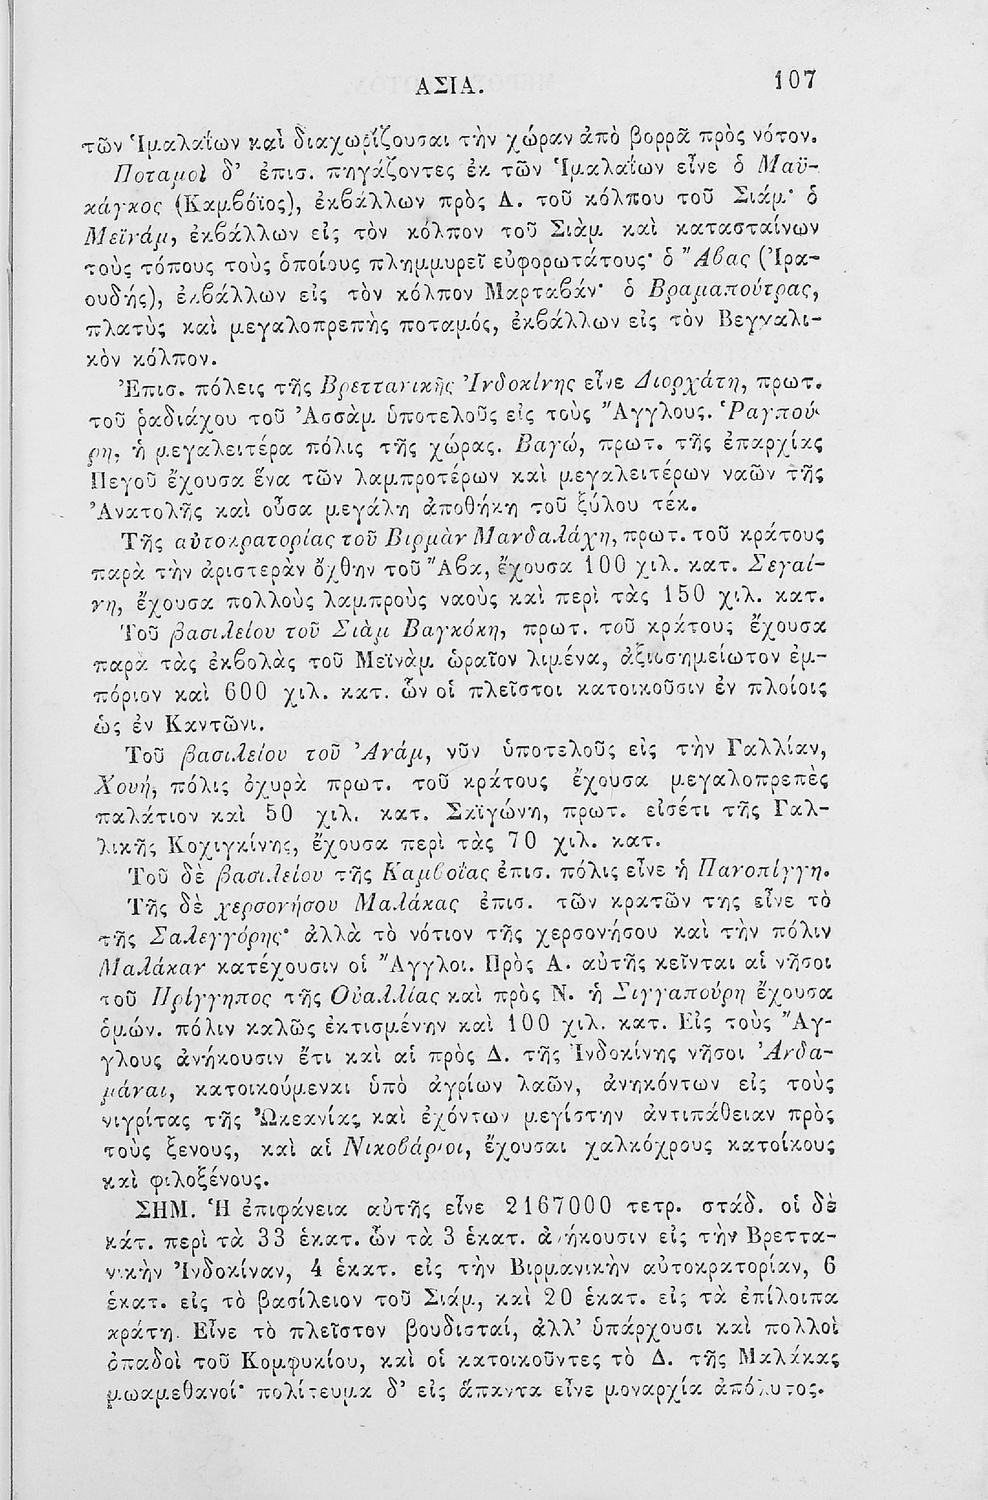 ΑΣΙΑ.
107
τῶν Ἱμαλαΐων καὶ διαχωρίζουσαι τὴν χώραν ἀπὸ βορρᾶ πρὸς νότον.
Ποταμοὶ δ' ἐπισ. πηγάζοντες ἐκ τῶν Ἱμαλαΐων εἶνε ὁ Μαϋ-
κάγκος (Καμβόϊος), ἐκβάλλων πρὸς Α. τοῦ κόλπου τοῦ Σιάμ· ὁ
Μεϊνάμ, ἐκβάλλων εἰς τὸν κόλπον τοῦ Σιὰμ καὶ κατασταίνων
τοὺς τόπους τοὺς ὁποίους πλημμυρεῖ εὐφορωτάτους· ὁ Ἄβας (Ἰρα-
ουδής), ἐκβάλλων εἰς τὸν κόλπον Μαρταβάν· ὁ Βραμαπούτρας,
πλατὺς καὶ μεγαλοπρεπὴς ποταμός, ἐκβάλλων εἰς τὸν Βεγγαλι-
κὸν κόλπον.
Ἐπισ. πόλεις τῆς Βρεττανικῆς Ἰνδοκίνης εἶνε Διορχάτη, πρωτ.
τοῦ ῥαδιάχου τοῦ Ἀσσὰμ ὑποτελοῦς εἰς τοὺς Ἄγγλους. Ῥαγπού-
ρη, ἡ μεγαλειτέρα πόλις τῆς χώρας. Βαγώ, πρωτ. τῆς ἐπαρχίας
Πεγοῦ ἔχουσα ἕνα τῶν λαμπροτέρων καὶ μεγαλειτέρων ναῶν τῆς
Ἀνατολῆς καὶ οὖσα μεγάλη ἀποθήκη τοῦ ξύλου τέκ.
Τῆς αὐτοκρατορίας τοῦ Βιρμὰν Μανδαλάχη, πρωτ. τοῦ κράτους
παρὰ τὴν ἀριστερὰν ὄχθην τοῦ Ἄβα, ἔχουσα 100 χιλ. κατ. Σεγαί-
νη, ἔχουσα πολλοὺς λαμπροὺς ναοὺς καὶ περὶ τὰς 150 χιλ. κατ.
Τοῦ βασιλείου τοῦ Σιὰμ Βαγκόκη, πρωτ. τοῦ κράτους ἔχουσα
παρὰ τὰς ἐκβολὰς τοῦ Μεϊνὰμ ὡραῖον λιμένα, ἀξιοσημείωτον ἐμ-
πόριον καὶ 600 χιλ. κατ. ὧν οἱ πλεῖστοι κατοικοῦσιν ἐν πλοίοις
ὡς ἐν Καντῶνι.
Τοῦ βασιλείου τοῦ Ἀνάμ, νῦν ὑποτελοῦς εἰς τὴν Γαλλίαν,
Χουή, πόλις ὀχυρὰ πρωτ. τοῦ κράτους ἔχουσα μεγαλοπρεπὲς
παλάτιον καὶ 50 χιλ. κατ. Σαϊγώνη, πρωτ. εἰσέτι τῆς Γαλ-
λικῆς Κοχιγκίνης, ἔχουσα περὶ τὰς 70 χιλ. κατ.
Τοῦ δὲ βασιλείου τῆς Καμβοΐας ἐπισ. πόλις εἶνε ἡ Πανοπίγγη.
Τῆς δὲ χερσονήσου Μαλάκας ἐπισ. τῶν κρατῶν της εἶνε τὸ
τῆς Σαλεγγόρης· ἀλλὰ τὸ νότιον τῆς χερσονήσου καὶ τὴν πόλιν
Μαλάκαν κατέχουσιν οἱ Ἄγγλοι. Πρὸς Α. αὐτῆς κεῖνται αἱ νῆσοι
τοῦ Πρίγγηπος τῆς Οὐαλλίας καὶ πρὸς Ν. ἡ Σιγγαπούρη ἔχουσα
ὁμών. πόλιν καλῶς ἐκτισμένην καὶ 100 χιλ. κατ. Εἰς τοὺς Ἄγ-
γλους ἀνήκουσιν ἔτι καὶ αἱ πρὸς Δ. τῆς Ἰνδοκίνης νῆσοι Ἀνδα-
μάναι, κατοικούμεναι ὑπὸ ἀγρίων λαῶν, ἀνηκόντων εἰς τοὺς
νιγρίτας τῆς Ὠκεανίας καὶ ἐχόντων μεγίστην ἀντιπάθειαν πρὸς
τοὺς ξενους, καὶ αἱ Νικοβάριοι, ἔχουσαι χαλκόχρους κατοίκους
καὶ φιλοξένους.
ΣΗΜ. Ἡ ἐπιφάνεια αὐτῆς εἶνε 2167000 τετρ. στάδ. οἱ δὲ
κάτ. περὶ τὰ 33 ἑκατ. ὧν τὰ 3 ἑκατ. ἀνήκουσιν εἰς τὴν Βρεττα-
νικὴν Ἰνδοκίναν, 4 ἑκατ. εἰς τὴν Βιρμανικὴν αὐτοκρατορίαν, 6
ἑκατ. εἰς τὸ βασίλειον τοῦ Σιάμ, καὶ 20 ἑκατ. εἰς τὰ ἐπίλοιπα
κράτη. Εἶνε τὸ πλεῖστον βουδισταί, ἀλλ' ὑπάρχουσι καὶ πολλοὶ
ὀπαδοὶ τοῦ Κομφυκίου, καὶ οἱ κατοικοῦντες τὸ Δ. τῆς Μαλάκας
μωαμεθανοί· πολίτευμα δ' εἰς ἅπαντα εἶνε μοναρχία ἀπόλυτος.